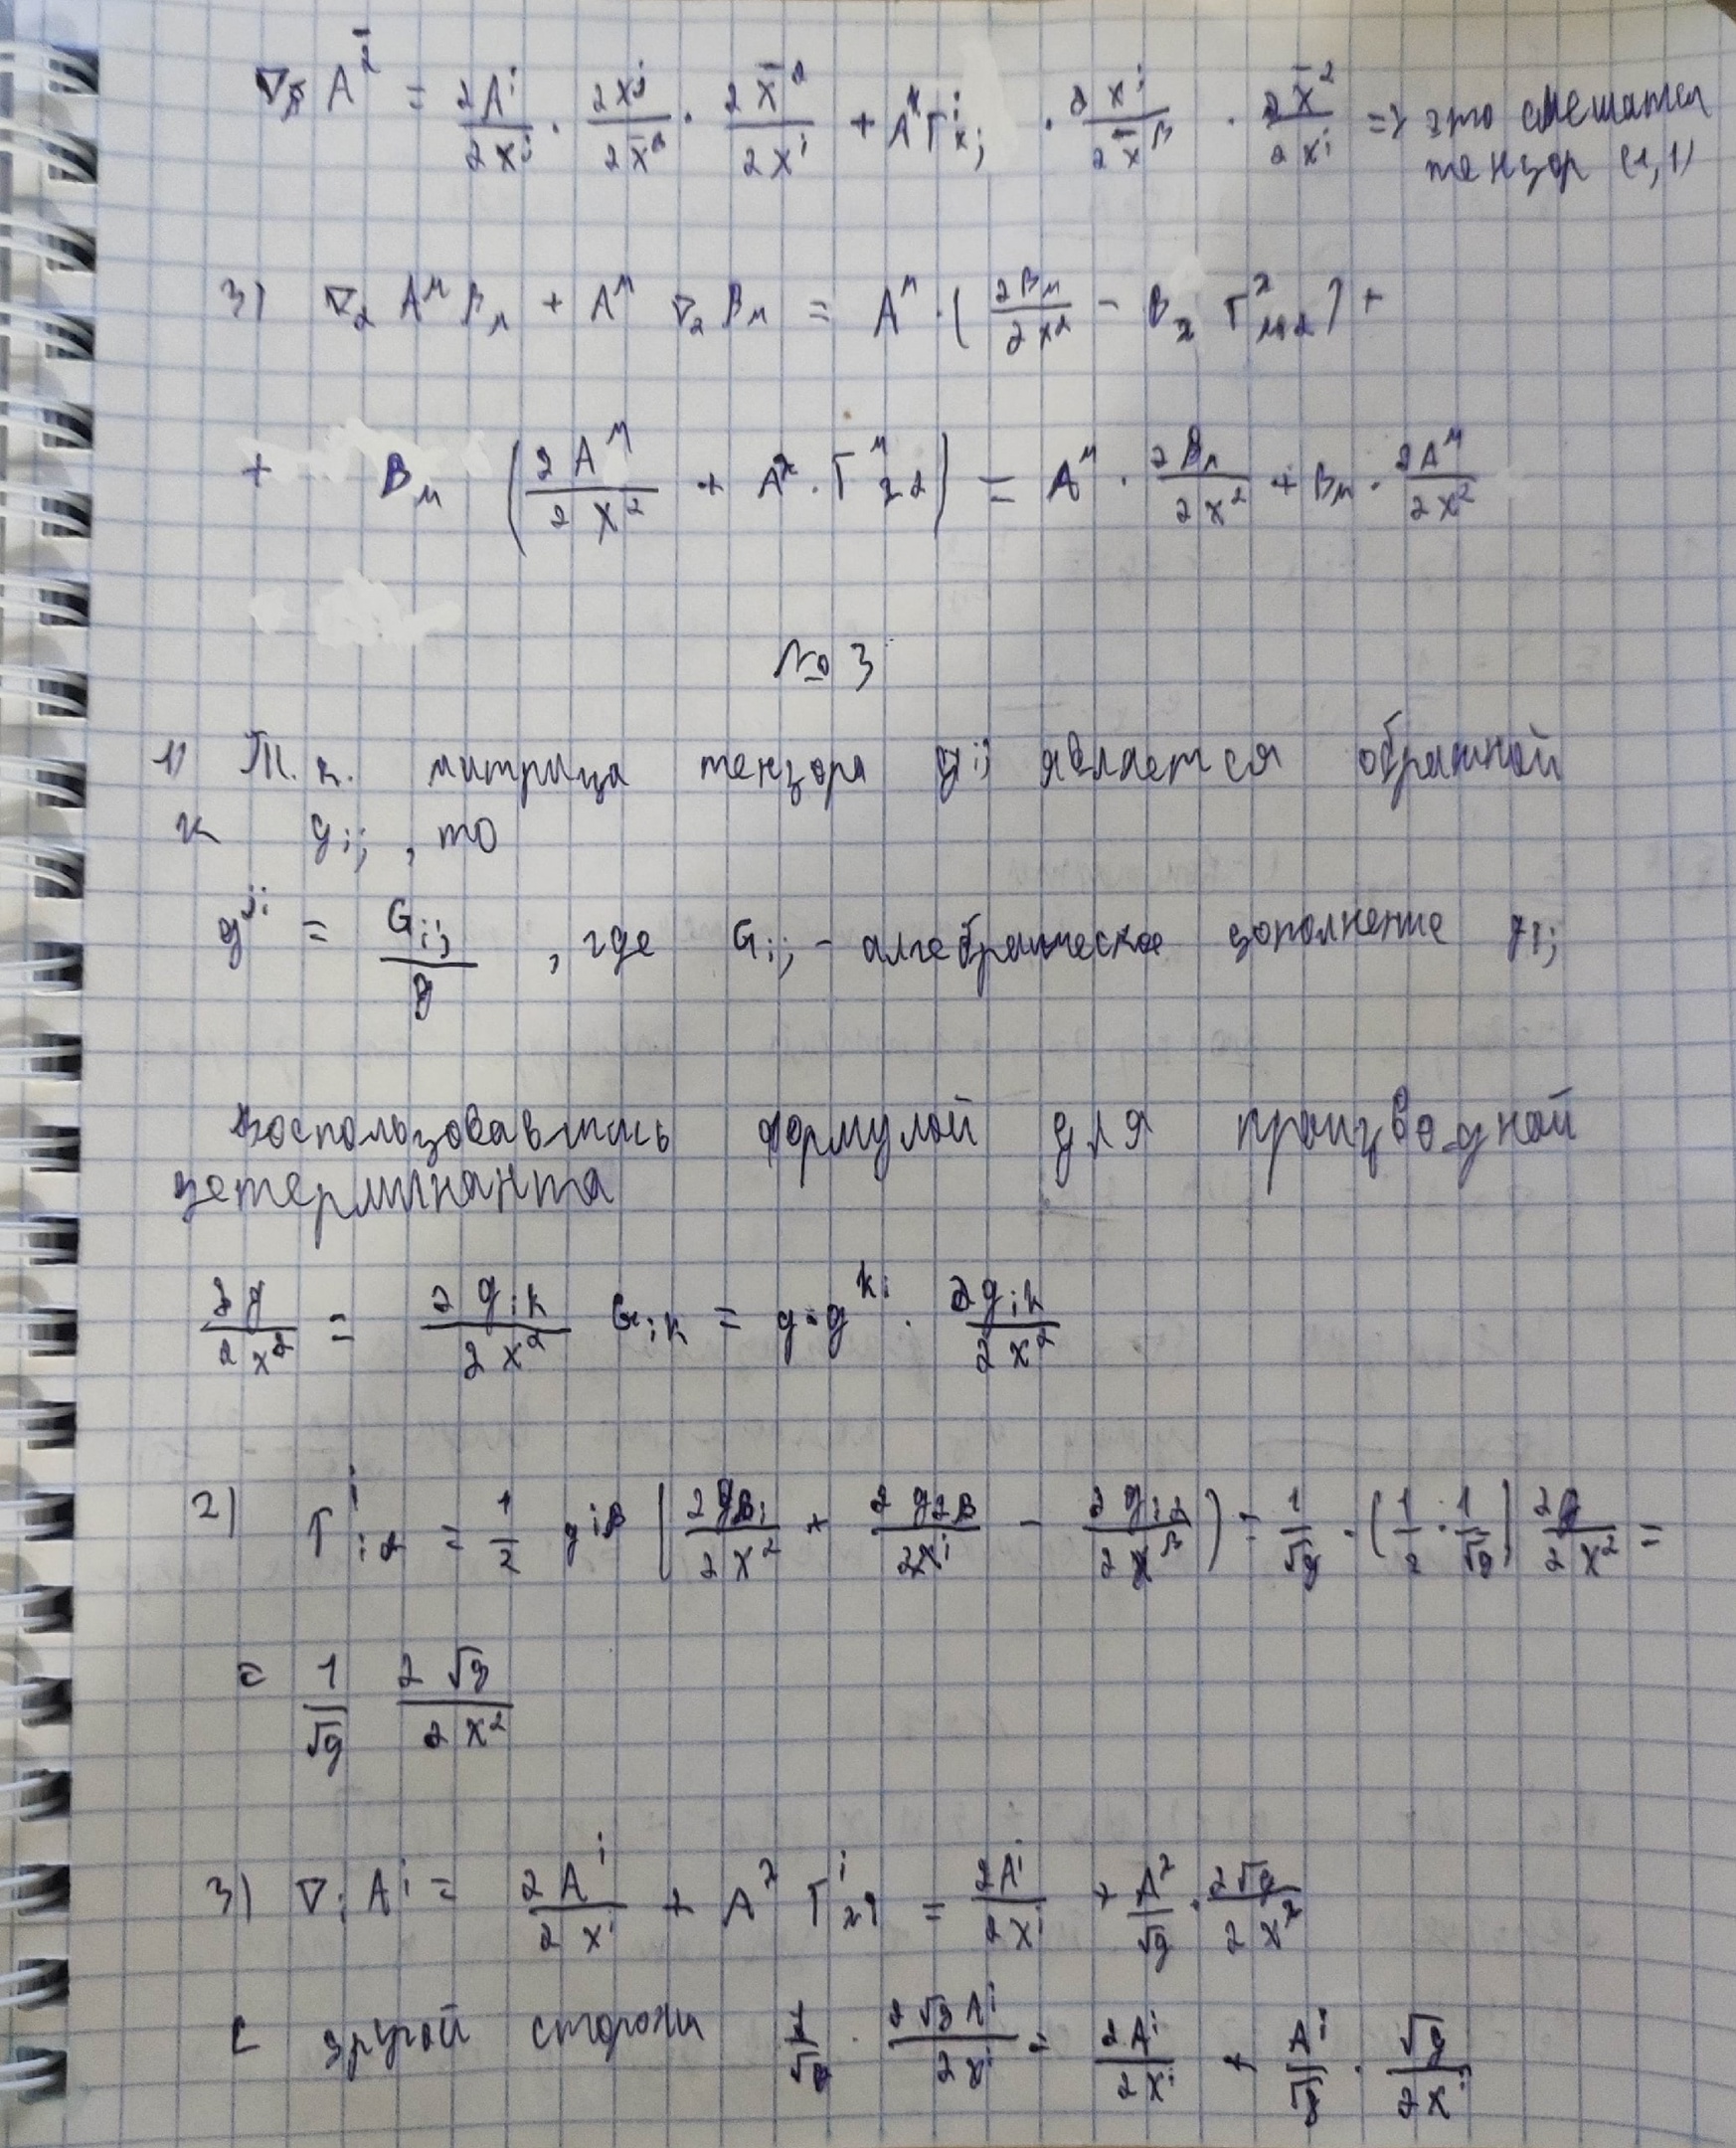 ∇_β̄ A^ᾱ = ∂A^i/∂x^j · ∂x^j/∂x̄^β · ∂x̄^α/∂x^i + A^k Γ^i_kj · ∂x^j/∂x̄^β · ∂x̄^α/∂x^i => это смешаттся
тензор (1,1)
3) ∇_α A^μ B_μ + A^μ ∇_α B_μ = A^μ · (∂B_μ/∂x^α - B_λ Γ^λ_μα) +
+ B_μ (∂A^μ/∂x^α + A^λ · Γ^μ_λα) = A^μ · ∂B_μ/∂x^α + B_μ · ∂A^μ/∂x^α
№3
1) Т.к. матрица тензора g^ij является обратной
к g_ij, то
g^ji = G_ij/g, где G_ij - алгебраическое дополнение g_ij
Воспользовавшись формулой для производной
детерминанта
∂g/∂x^α = ∂g_ik/∂x^α G_ik = g·g^ki · ∂g_ik/∂x^α
2) Γ^i_iα = 1/2 g^iβ (∂g_βi/∂x^α + ∂g_αβ/∂x^i - ∂g_iα/∂x^β) = 1/√g · (1/2 · 1/√g) ∂g/∂x^α =
= 1/√g ∂√g/∂x^α
3) ∇_i A^i = ∂A^i/∂x^i + A^λ Γ^i_λi = ∂A^i/∂x^i + A^λ/√g · ∂√g/∂x^λ
С другой стороны 1/√g · ∂√g A^i/∂x^i = ∂A^i/∂x^i + A^i/√g · √g/∂x^i